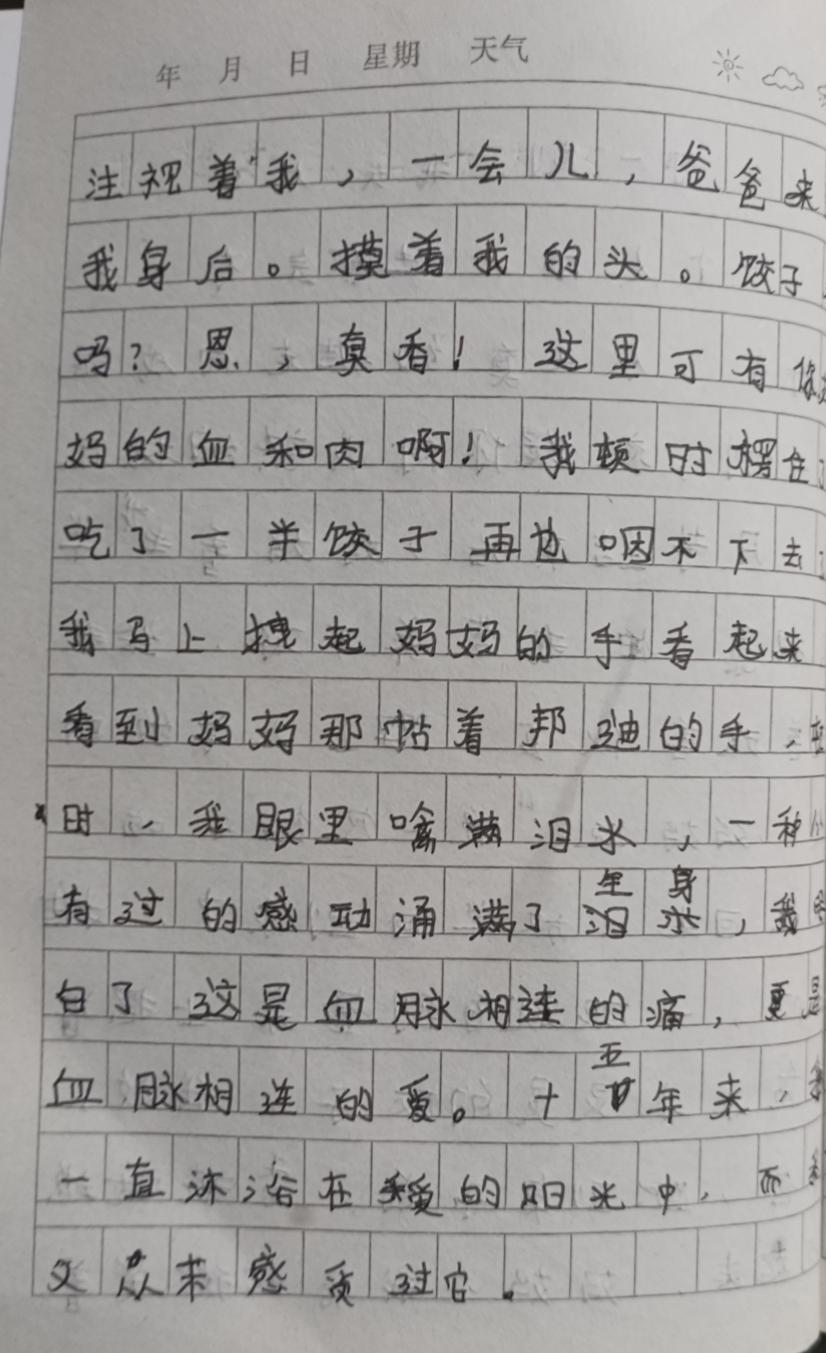 年 月 日 星期 天气
注视着我，一会儿，爸爸来
我身后。摸着我的头。饺子
吗？恩，真香！这里可有你
妈的血和肉啊！我顿时楞住
吃了一半饺子再也咽不下去
我马上拽起妈妈的手看起来
看到妈妈那帖着邦迪的手，
时，我眼里噙满泪水，一种
有过的感动涌满了全身，我
白了这是血脉相连的痛，更是
血脉相连的爱。十五年来，
一直沐浴在爱的阳光中，而
又从未感受过它。